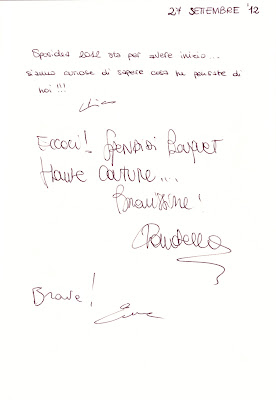 27 SETEMBRE '12
Sposidea 2012 sta per avere inizio...
siamo curiose di sapere cosa ne pensate di
noi!!!
Eccoci! Splendidi Bouquet
Haute Couture...
Bravissime!
Brave!